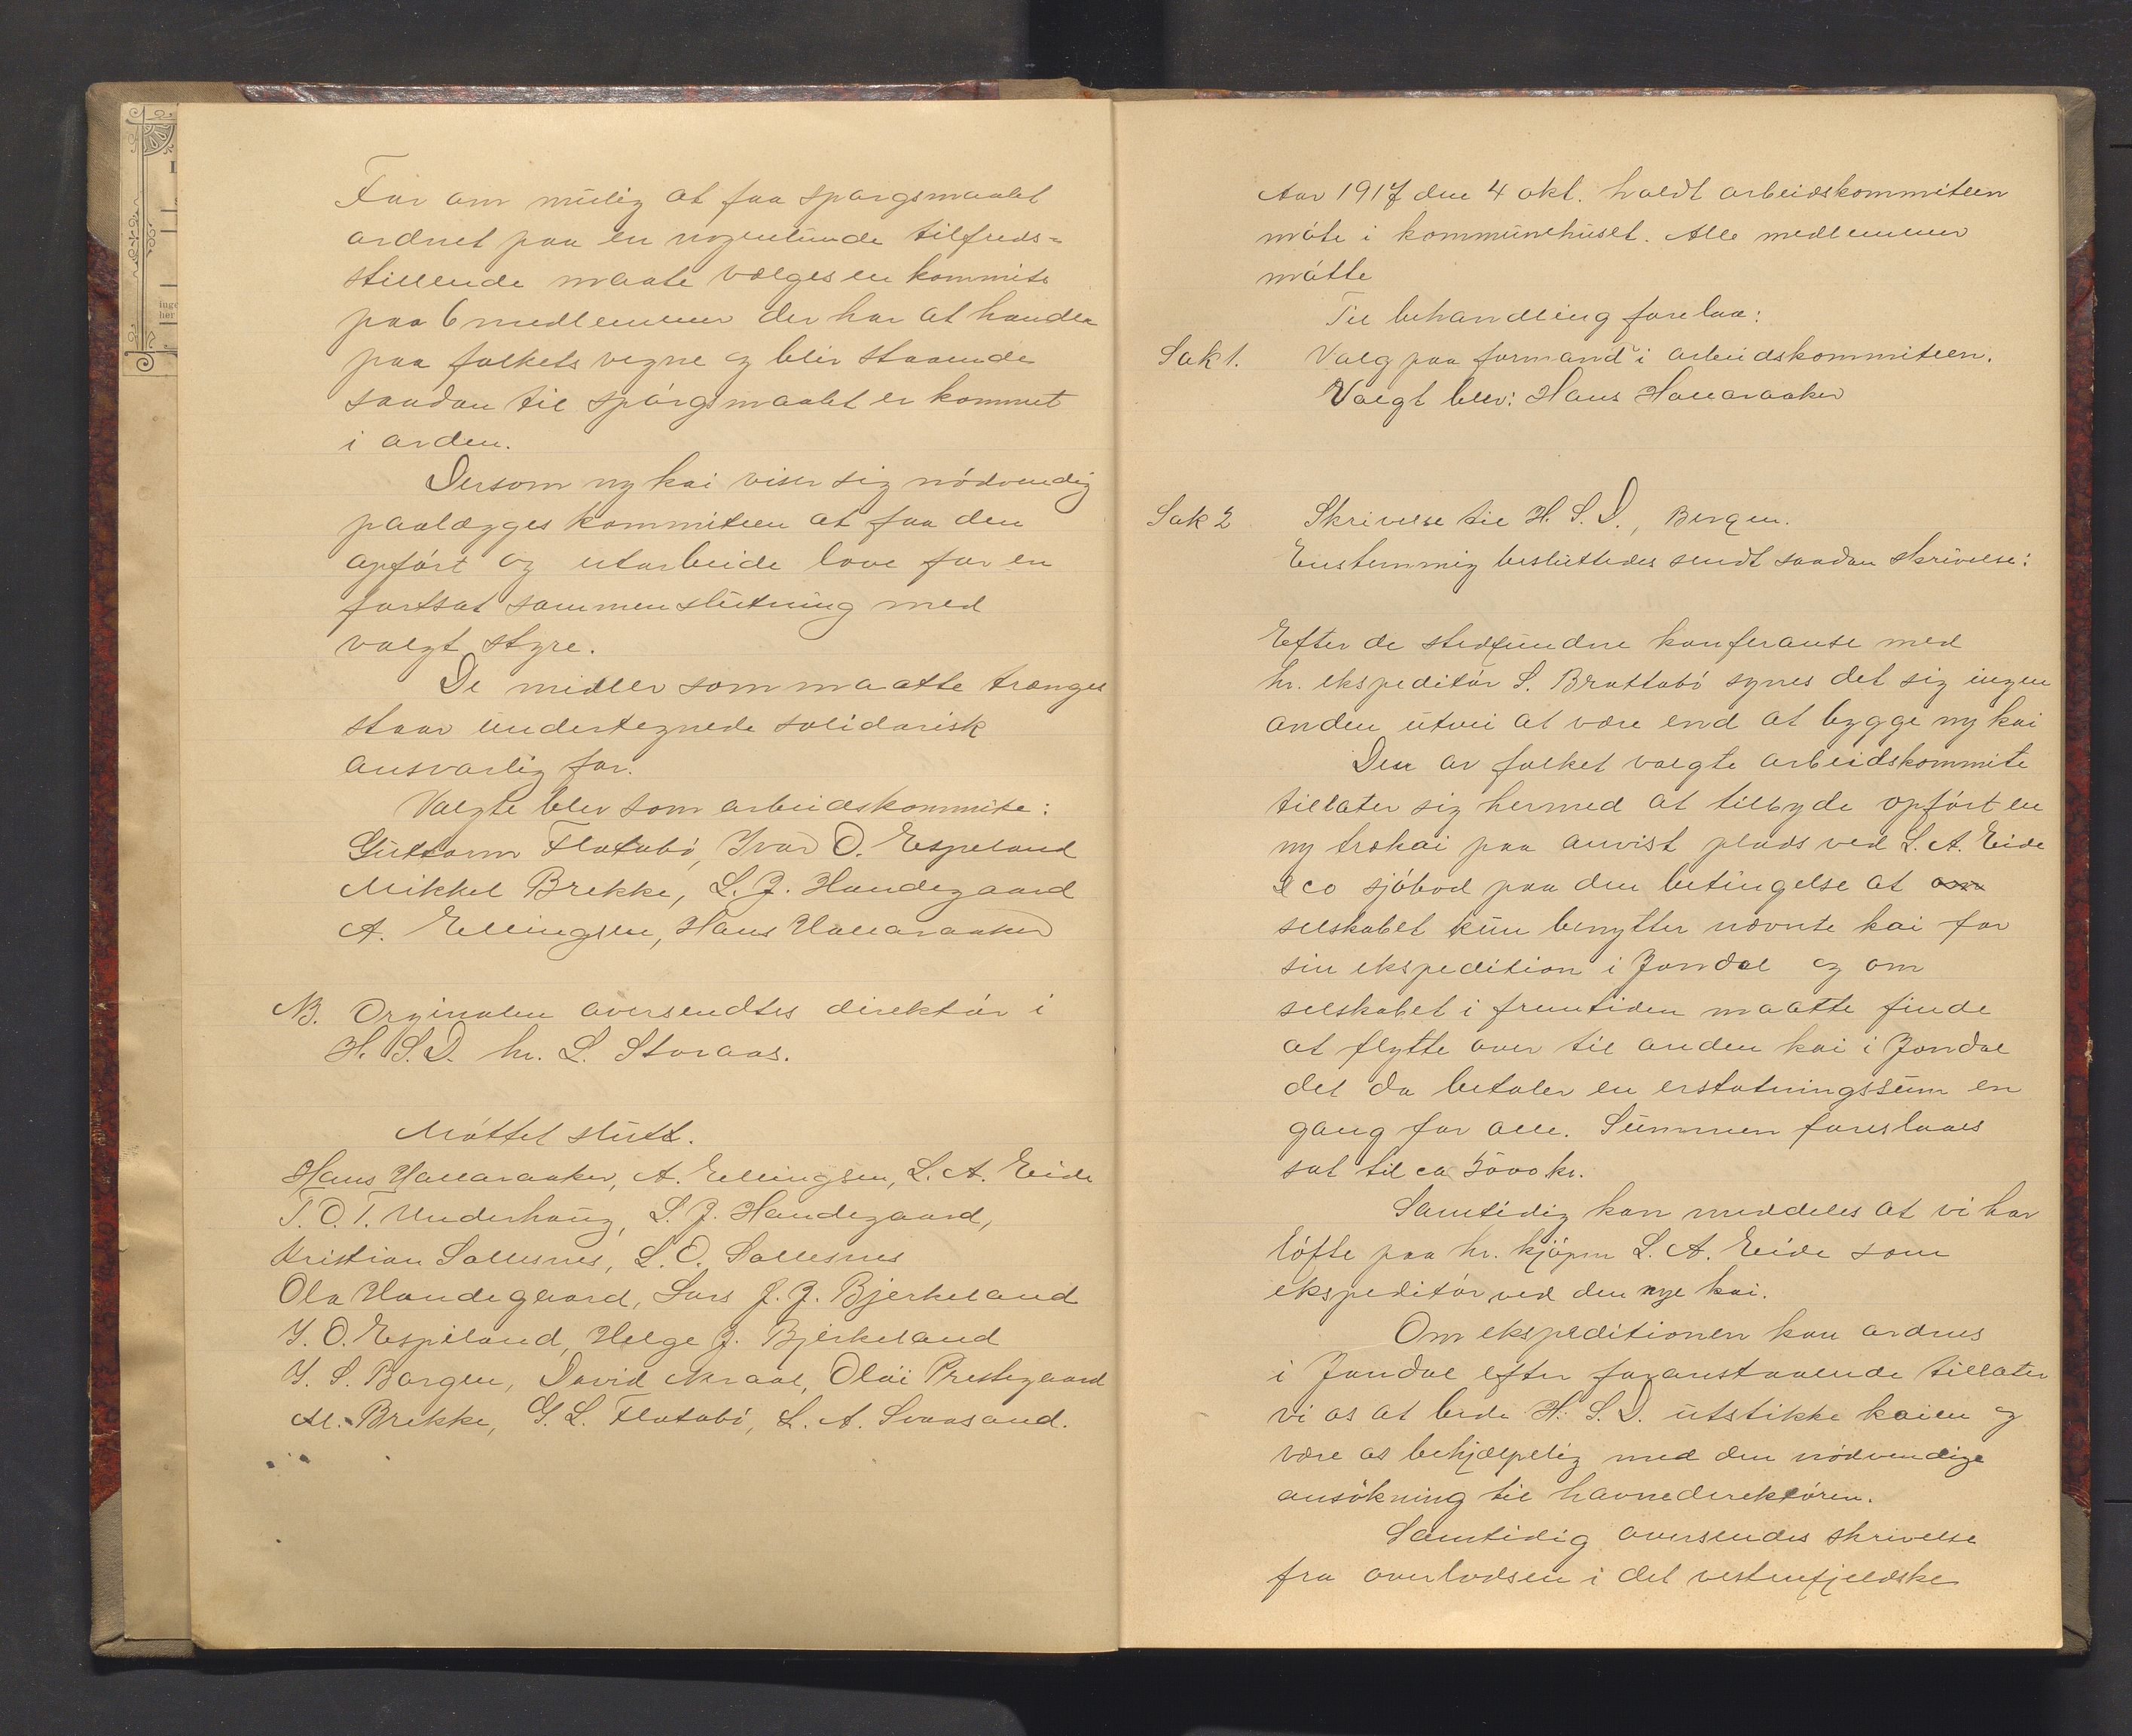 For om mulig at faa spørgsmaalet
ordnet paa en nogenlunde tilfreds-
stillende maate vælges en kommite
paa 6 medlemmer der har at handle
paa folkets vegne og blir staaende
saadan til spørgsmaalet er kommet
i orden.
Dersom ny kai viser sig nødvendig
paalægges kommiteen at faa den
opført og utarbeide love for en
fortsat sammenslutning med
valgt styre.
De midler som maatte trænges
staar undertegnede solidarisk
ansvarlig for.
Valgte blev som arbeidskommite:
Guttorm Flatabø, Ivar O. Espeland
Mikkel Brekke, L. J. Handegaard
A. Ellingsen, Hans Hallaraaker
NB. Orginalen oversendtes direktør i
H. S. D. hr. L. Storaas.
Møttet slutt.
Hans Hallaraaker, A. Ellingsen, L. A. Eide
T. O. T. Underhaug, L. J. Handegaard,
Kristian Sallesnes, L. O. Sallesnes
Ola Handegaard, Lars J. J. Bjerkeland
I. O. Espeland, Helge J. Bjerkeland
I. S. Bargen, David Akraal, Olai Prestegaard
M. Brekke, G. L. Flatabø, L. A. Svaasand.
Aar 1917 den 4 okt. holdt arbeidskommiteen
møte i kommunehuset. Alle medlemmer
møtte
Til behandling forelaa:
Sak 1. Valg paa formand i arbeidskommiteen.
Valgt blev: Hans Hallaraaker
Sak 2 Skrivelse til H. S. D., Bergen.
Enstemmig besluttedes sendt saadan skrivelse:
Efter de stedfundne konferanse med
hr. ekspeditør S. Brattabø synes det sig ingen
anden utvei at være end at bygge ny kai
Den av folket valgte arbeidskommite
tillater sig hermed at tilbyde opført en
ny trækai paa anvist plads ved L. A. Eide
& co sjøbod paa den betingelse at om
selskabet kun benytter nævnte kai for
sin ekspedition i Jondal og om
selskabet i fremtiden maatte finde
at flytte over til anden kai i Jondal
det da betaler en erstatningssum en
gang for alle. Summen foreslaaes
sat til ca 5000 kr.
Samtidig kan meddeles at vi har
løfte paa hr. kjøpm L. A. Eide som
ekspeditør ved den nye kai.
Om ekspeditionen kan ordnes
i Jondal efter foranstaaende tillater
vi os at bede H. S. D. utstikke kaien og
være os behjælpelig med den nødvendige
ansøkning til havnedirektøren.
Samtidig oversendes skrivelse
fra overlodsen i det vestenfjeldske